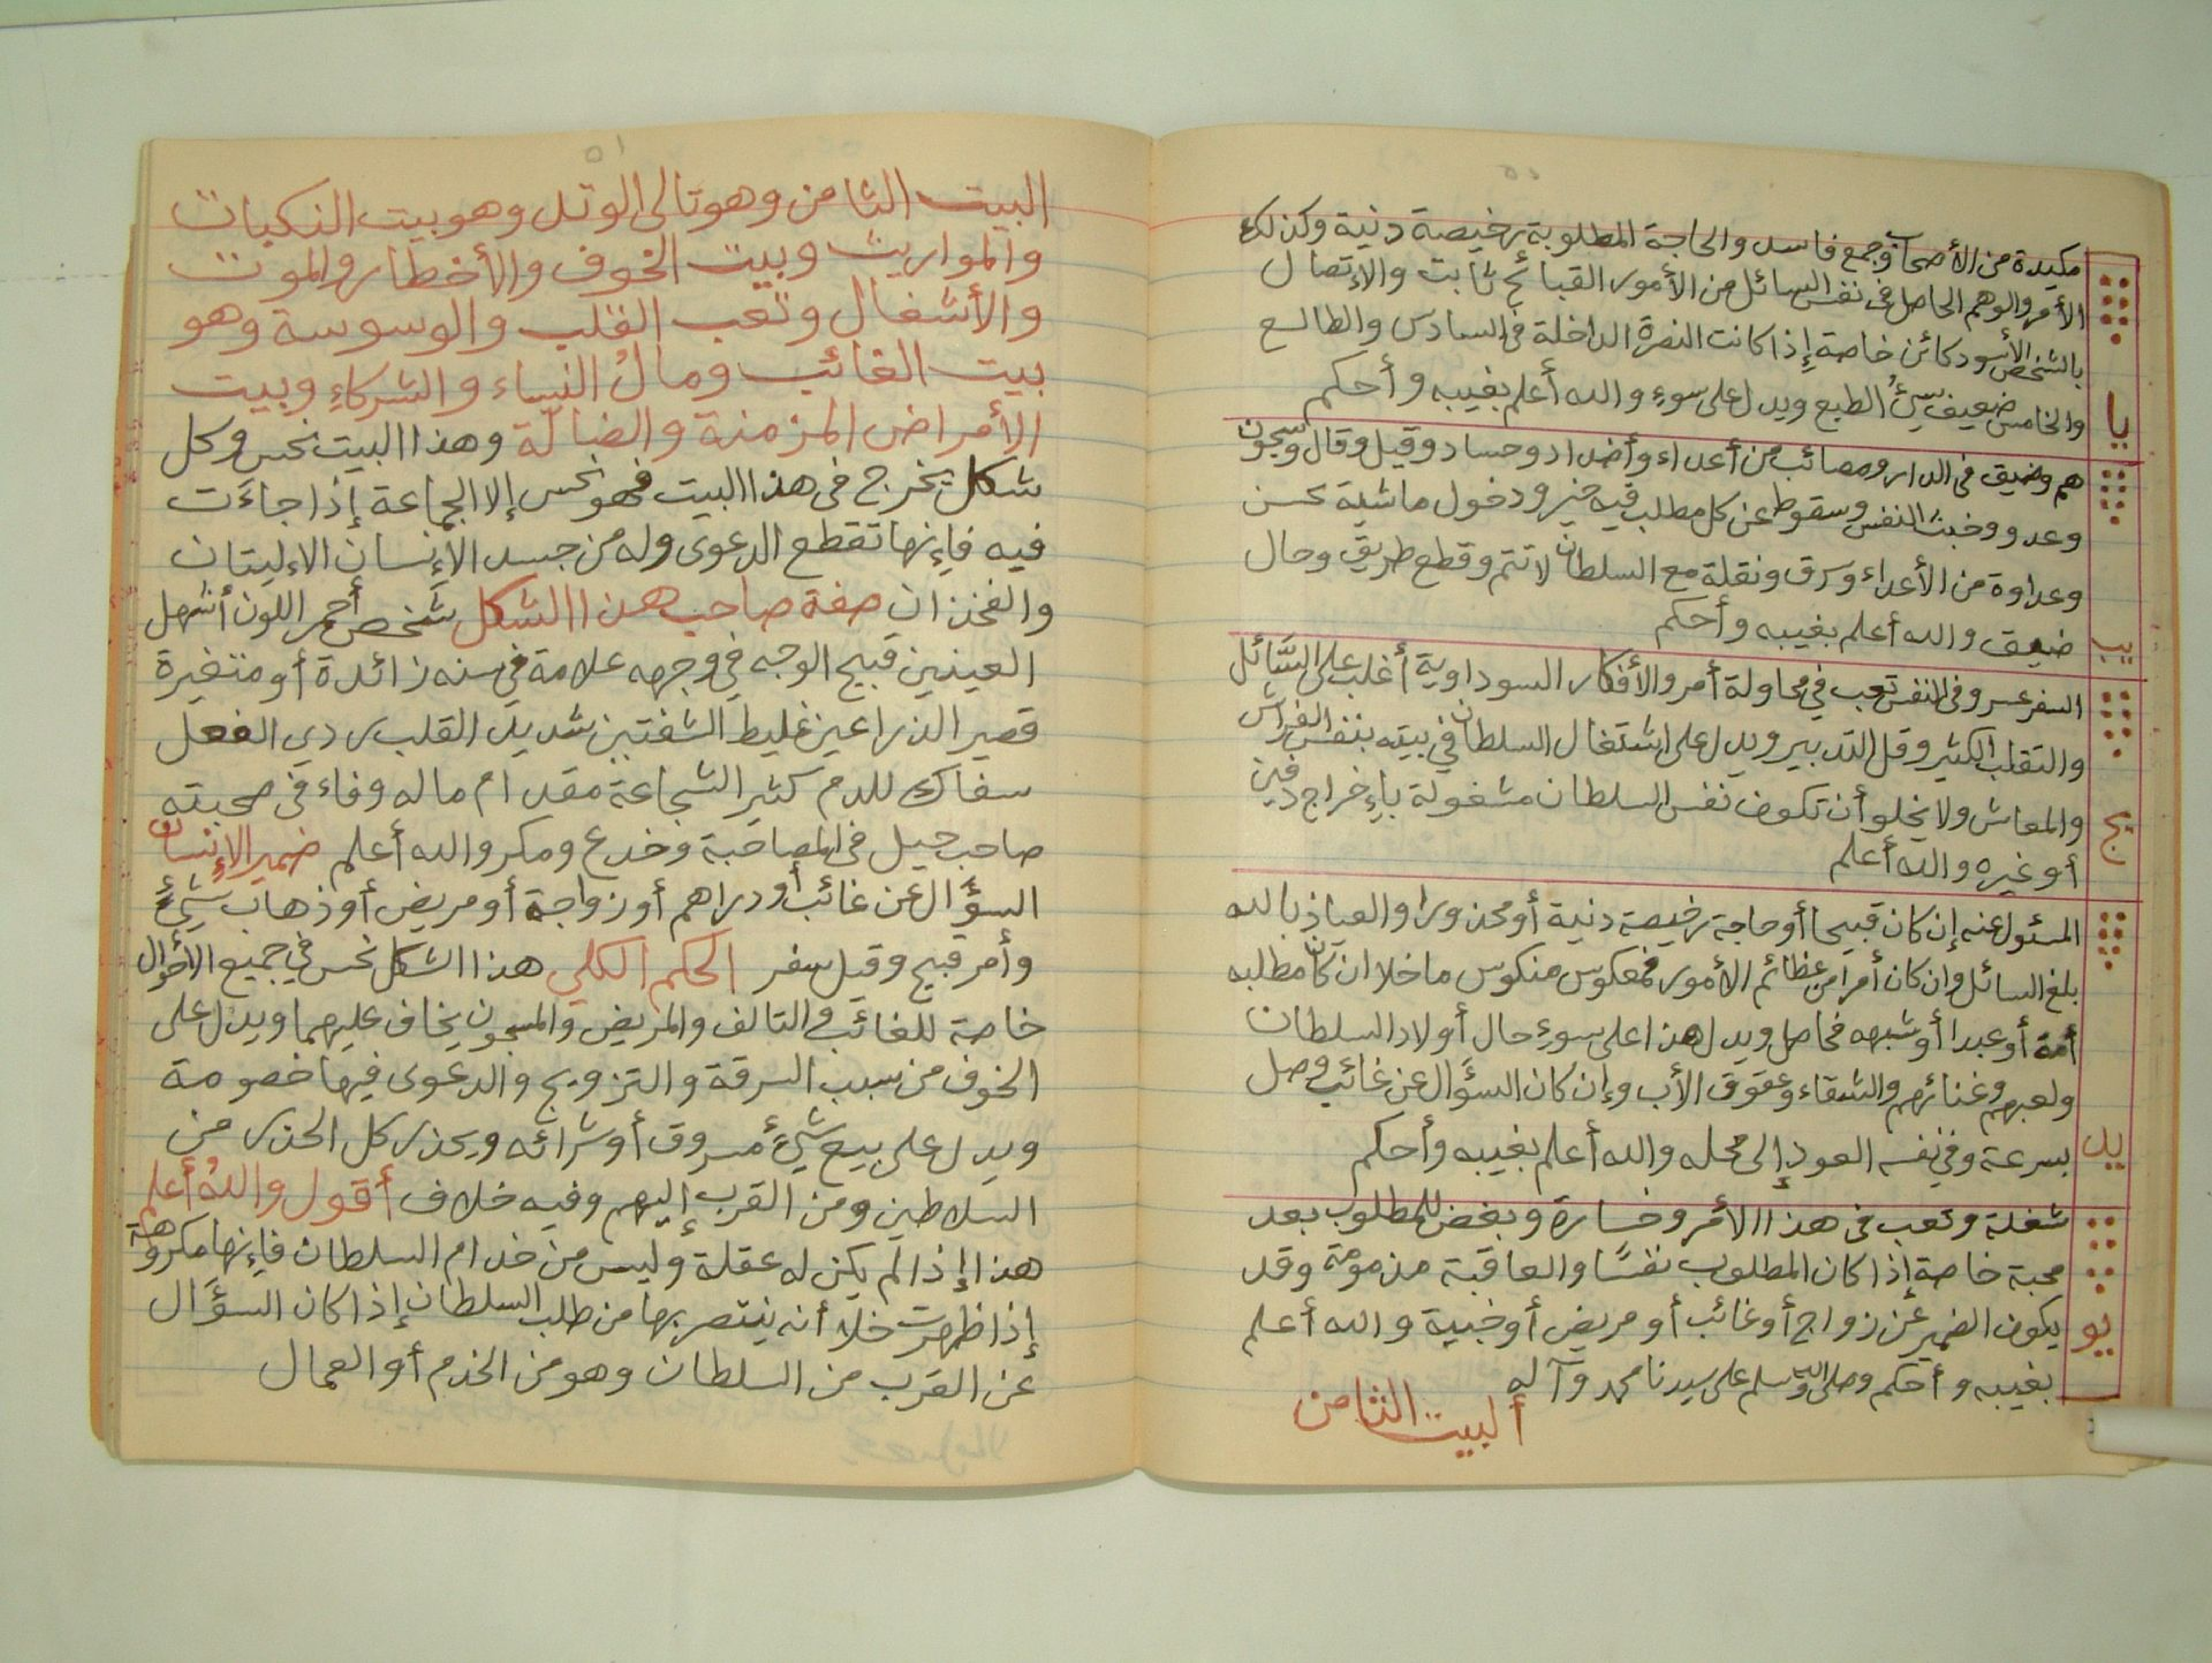 مكيدة من الأصحاب وجمع فاسد والحاجة المطلوبة رخيصة دنية وكذلك
الأمر والوهم الحاصل في نفس السائل من الأمور القبائح ثابت والإتصال
بالشخص الأسود كائن خاصة إذا كانت النصرة الداخلة في السادس والطالع
والخامس ضعيف سيئُ الطبع ويدل على سوءٍ والله أعلم بغيبه وأحكم
يا
هم وضيق في الدار ومصائب من أعداء وأضداد وحساد وقيل وقال وسجون
وعدو وخبث النفس وسقوط عن كل مطلب فيه خير ودخول ماشية بحسن
وعداوة من الأعداء وسرق ونقلة مع السلطان لا تتم وقطع طريق وحال
ضيق والله أعلم بغيبه وأحكم
يب
السفر عسر وفي النفس تعب في محاولة أمر والأفكار السوداوية أغلب على السَّائل
والتقلب الكثير وقل التدبير ويدل على اشتغال السلطان في بيته بنفس الفراش
والمعاش ولا يخلو أن تكون نفس السلطان مشغولة بإخراج دفين
أو غيره والله أعلم
يج
المسئول عنه إن كان قبيحا أو حاجة رخيصة دنية أو محذورا والعياذ بالله
بلغ السائل وإن كان أمرا من عظائم الأمور فمعكوس منكوس ما خلا ان كان مطلبه
أمة أو عبدا أو شبهه فحاصل ويدل هذا على سوءِ حال أولاد السلطان
ولعبهم وغنائهم والشقاء وعقوق الأب وإن كان السؤال عن غائب وصل
بسرعة وفي نفسه العود إلى محله والله أعلم بغيبه وأحكم
يد
شغلة وتعب في هذا الأمر وخسارة وبغض للمطلوب بعد
محبة خاصة إذا كان المطلوب نفسًا والعاقبة مذمومة وقد
يكون الضمير عن زواج أو غائب أو مريض أو خبية والله أعلم
يو
بغيبه وأحكم وصلى الله وسلم على سيدنا محمد وآله
ألبيت الثامن
٥١
البيت الثامن وهو تالى الوتد وهو بيت النكبات
والمواريث وبيت الخوف والأخطار والموت
والأشغال وتعب القلب والوسوسة وهو
بيت الغائب ومالُ النساء والشركاءِ وبيت
الأمراض المزمنة والضالّة وهذا البيت نحس وكل
شكل يخرج في هذا البيت فهو نحس إلا الجماعة إذا جاءَت
فيه فإنها تقطع الدعوى وله من جسد الأنسان الاليتان
والفخذان صفة صاحب هذا الشكل شخص أحمر اللون أشهل
العينين قبيح الوجه في وجهه علامة في سنه زائدة أو متغيرة
قصير الذراعين غليط الشفتين شديد القلب ردي الفعل
سفاك للدم كثير الشجاعة مقدام ماله وفاء في صحبته
صاحب حيل في المصاحبة وخدع ومكر والله أعلم ضمير الإنسان
السؤال عن غائب أو دراهم أو زواجة أو مريض أو ذهاب شيءٍ
وأمر قبيح وقيل سفر الحكم الكلي هذا الشكل نحس في جميع الأحوال
خاصة للغائب والتالف والمريض والمسجون يخاف عليهما ويدل على
الخوف من سبب السرقة والتزويج والدعوى فيها خصومة
ويدل على بيع شيءٍ مسروق أو شرائه ويحذر كل الحذر من
السلاطين ومن القرب إليهم وفيه خلاف أقول واللهُ أعلم
هذا إذا لم يكن له عقلة وليس من خدام السلطان فإنها مكروهة
إذا ظهرت خلا أنه ينتصر بها من طلب السلطان إذا كان السؤال
عن القرب من السلطان وهو من الخدم أو العمال